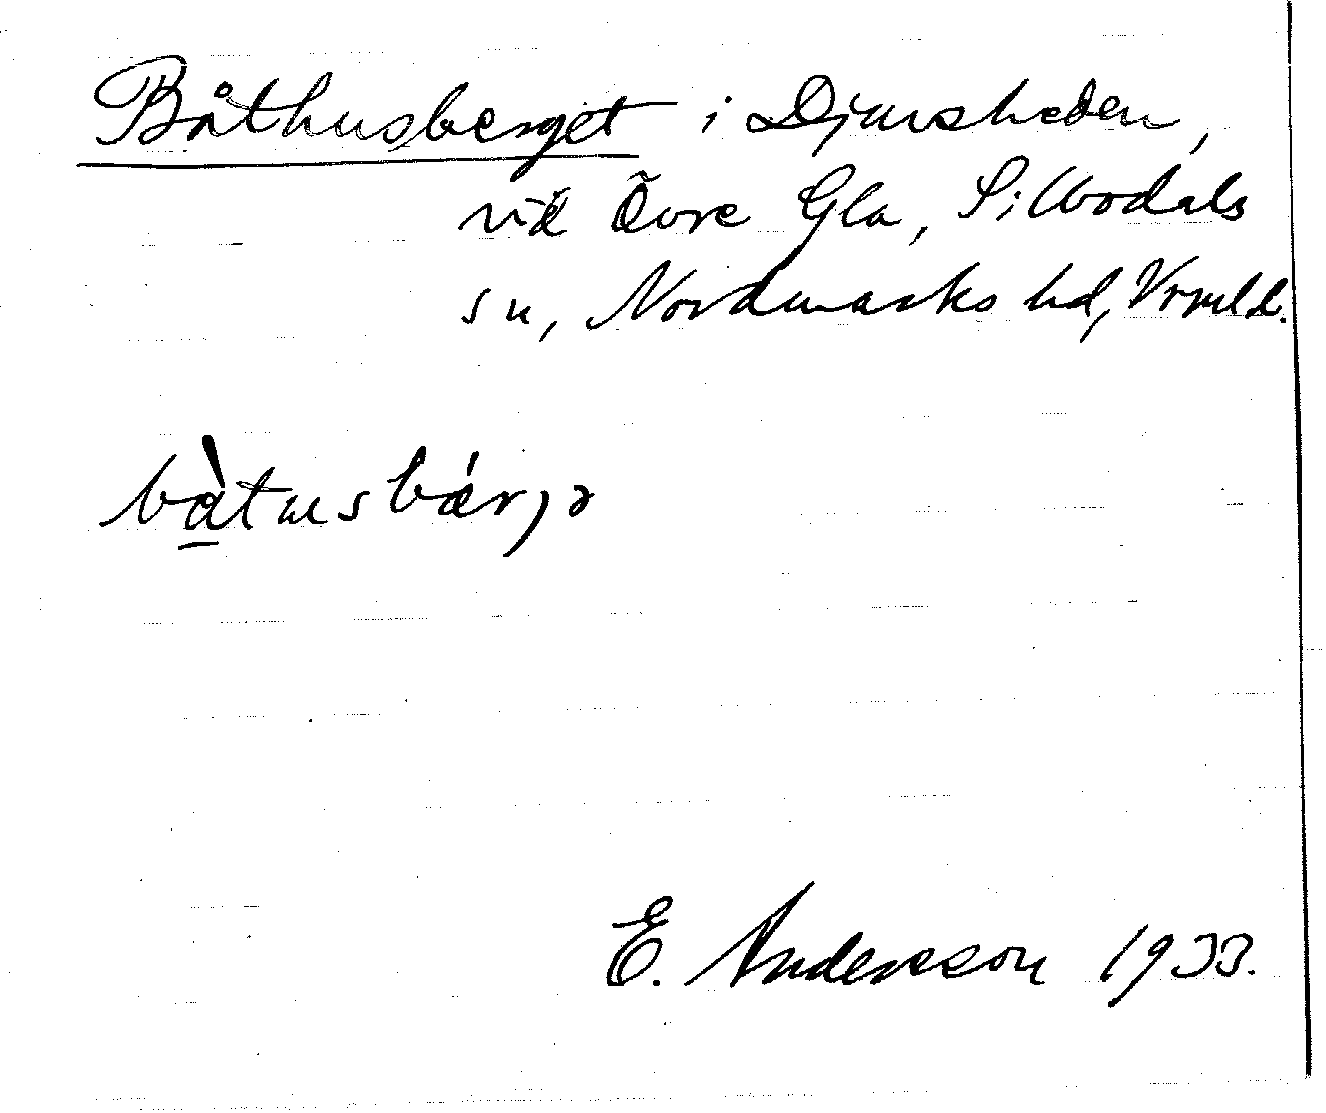 Båthusberget i Djursheden,
vid Övre Gla, Sillbodals
sn, Nordmarks hd, Vrmld.
bàtusbǽrjə
E. Andersson 1933.